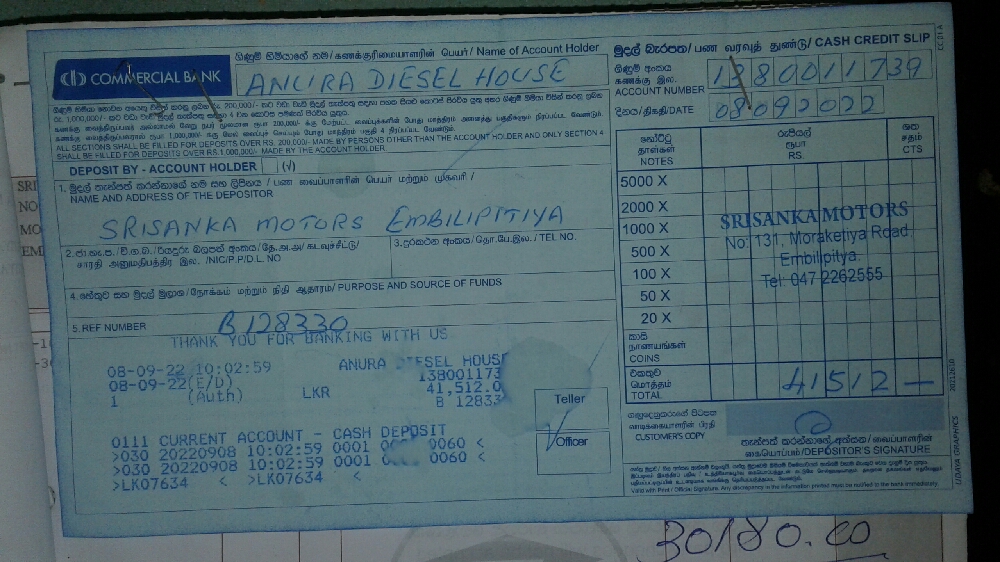 COMMERCIAL BANK
ගිණුම් හිමියාගේ නම / கணக்குரிமையாளரின் பெயர் / Name of Account Holder
ANURA DIESEL HOUSE
මුදල් බැරපත / பண வரவுத் துண்டு / CASH CREDIT SLIP
CC 01 A
ගිණුම් අංකය
கணக்கு இல.
ACCOUNT NUMBER
1380011739
දිනය/திகதி/DATE
08092022
ALL SECTIONS SHALL BE FILLED FOR DEPOSITS OVER RS. 200,000/- MADE BY PERSONS OTHER THAN THE ACCOUNT HOLDER AND ONLY SECTION 4
SHALL BE FILLED FOR DEPOSITS OVER RS.1,000,000/- MADE BY THE ACCOUNT HOLDER.
DEPOSIT BY - ACCOUNT HOLDER (√)
1. මුදල් තැන්පත් කරන්නාගේ නම සහ ලිපිනය / பண வைப்பாளரின் பெயர் மற்றும் முகவரி /
NAME AND ADDRESS OF THE DEPOSITOR
SRISANKA MOTORS EMBILIPITIYA
சாரதி அனுமதிபத்திர இல. /NIC/P.P/D.L. NO
3. දුරකථන අංකය/தொ.பே.இல./ TEL NO.
4. හේතුව සහ මුදල් මූලාශ්‍ර/நோக்கம் மற்றும் நிதி ஆதாரம்/ PURPOSE AND SOURCE OF FUNDS
5. REF NUMBER
B 128330
THANK YOU FOR BANKING WITH US
08-09-22 10:02:59 ANURA DIESEL HOUS
08-09-22(E/D) 138001173
1 (Auth) LKR 41,512.0
B 12833
0111 CURRENT ACCOUNT - CASH DEPOSIT
>030 20220908 10:02:59 0001 0060 <
>030 20220908 10:02:59 0001 0060 <
>LK07634 < >LK07634 <
Teller
Officer
නෝට්ටු
தாள்கள்
NOTES
රුපියල්
ரூபா
RS.
ශත
சதம்
CTS
5000 X
2000 X
1000 X
500 X
100 X
50 X
20 X
SRISANKA MOTORS
No: 131, Moraketiya Road,
Embilipitya.
Tel: 047 2262555
කාසි
நாணயங்கள்
COINS
එකතුව
மொத்தம்
TOTAL
41512 —
ගනුදෙනුකරුගේ පිටපත
வாடிக்கையாளரின் பிரதி
CUSTOMER'S COPY
තැන්පත් කරන්නාගේ අත්සන/வைப்பாளரின்
கையொப்பம்/DEPOSITOR'S SIGNATURE
Valid with Print / Official Signature. Any discrepancy in the information printed must be notified to the bank immediately.
UDAYA GRAPHICS
30180.00